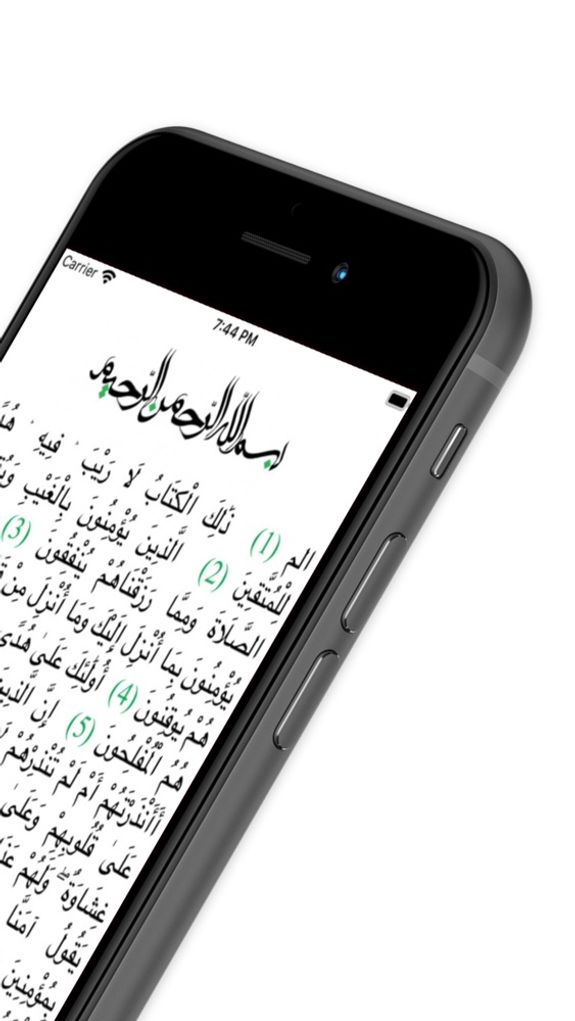 Carrier
7:44 PM
بسم الله الرحمن الرحيم
الم (1) ذَٰلِكَ الْكِتَابُ لَا رَيْبَ ۛ فِيهِ ۛ
لِلْمُتَّقِينَ (2) الَّذِينَ يُؤْمِنُونَ بِالْغَيْبِ
الصَّلَاةَ وَمِمَّا رَزَقْنَاهُمْ يُنْفِقُونَ (3)
يُؤْمِنُونَ بِمَا أُنْزِلَ إِلَيْكَ وَمَا أُنْزِلَ مِنْ
هُمْ يُوقِنُونَ (4) أُولَٰئِكَ عَلَىٰ هُدًى
هُمُ الْمُفْلِحُونَ (5) إِنَّ الَّذِينَ
أَأَنْذَرْتَهُمْ أَمْ لَمْ تُنْذِرْهُمْ
عَلَىٰ قُلُوبِهِمْ وَعَلَىٰ
غِشَاوَةٌ ۖ وَلَهُمْ
يَقُولُ آمَنَّا
بِمُؤْمِنِينَ